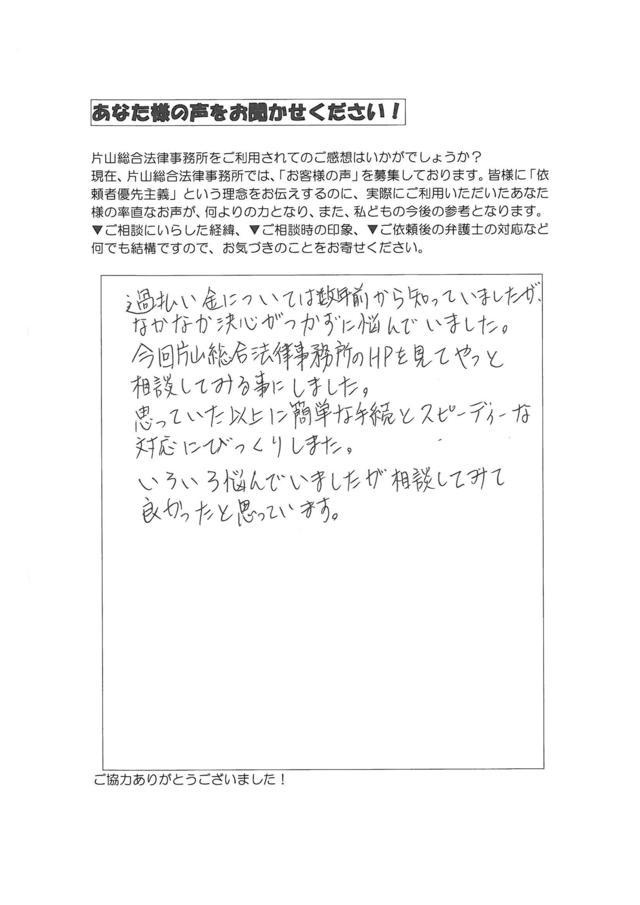 あなた様の声をお聞かせください！
片山総合法律事務所をご利用されてのご感想はいかがでしょうか？
現在、片山総合法律事務所では、「お客様の声」を募集しております。皆様に「依
頼者優先主義」という理念をお伝えするのに、実際にご利用いただいたあなた
様の率直なお声が、何よりの力となり、また、私どもの今後の参考となります。
▼ご相談にいらした経緯、▼ご相談時の印象、▼ご依頼後の弁護士の対応など
何でも結構ですので、お気づきのことをお寄せください。
過払い金については数年前から知っていましたが、
なかなか決心がつかずに悩んでいました。
今回片山総合法律事務所のHPを見てやっと
相談してみる事にしました。
思っていた以上に簡単な手続とスピーディーな
対応にびっくりしました。
いろいろ悩んでいましたが相談してみて
良かったと思っています。
ご協力ありがとうございました！